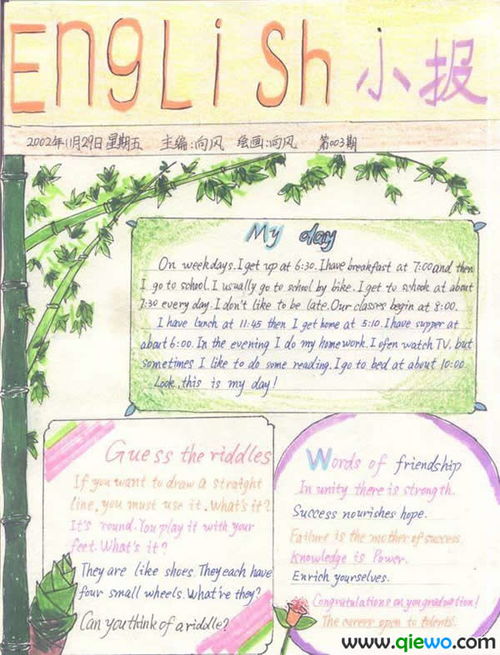 English 小报
2002年11月29日 星期五 主编:向风 绘画:向风 第003期
My day
On weekdays. I get up at 6:30. I have breakfast at 7:00 and then
I go to school. I usually go to school by bike. I get to school at about
7:30 every day. I don't like to be late. Our classes begin at 8:00.
I have lunch at 11:45 then I get home at 5:10. I have supper at
about 6:00. In the evening I do my homework. I ofen watch TV. but
sometimes I like to do some reading. I go to bed at about 10:00.
Look, this is my day!
Guess the riddles
If you want to draw a straight
line, you must use it. What's it?
It's round. You play it with your
feet. What's it?
They are like shoes. They each have
four small wheels. What're they?
Can you think of a riddle?
Words of friendship
In unity there is strength.
Success nourishes hope.
Failure is the mother of success.
Knowledge is Power.
Enrich yourselves.
Congratulations on you graduation!
The career open to talents.
www.qiewo.com